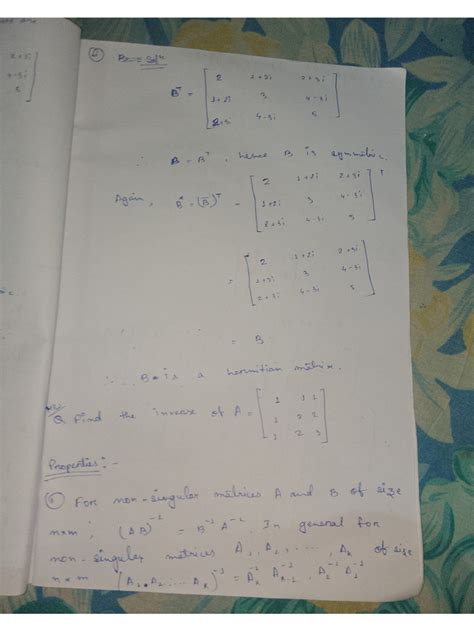 2+3i
4-3i
5
② B== Solⁿ
B^T = [ 2 1+2i 2+3i
1+2i 3 4-3i
2+3i 4-3i 5 ]
∴ B = B^T, hence B is symmetric.
Again, B* = (B̅)^T = [ 2 1+2i 2+3i
1+2i 3 4-3i
2+3i 4-3i 5 ]^T
= [ 2 1+2i 2+3i
1+2i 3 4-3i
2+3i 4-3i 5 ]
= B
∴ B is a hermitian matrix.
Q. Find the inverse of A = [ 1 1 1
1 2 2
1 2 3 ]
Properties:-
① For non-singular matrices A and B of size
n×n ; (AB)^-1 = B^-1 A^-1. In general for
non-singular matrices A1, A2, ..., Ak of size
n×n (A1.A2....Ak)^-1 = Ak^-1 Ak-1^-1 ... A2^-1 A1^-1